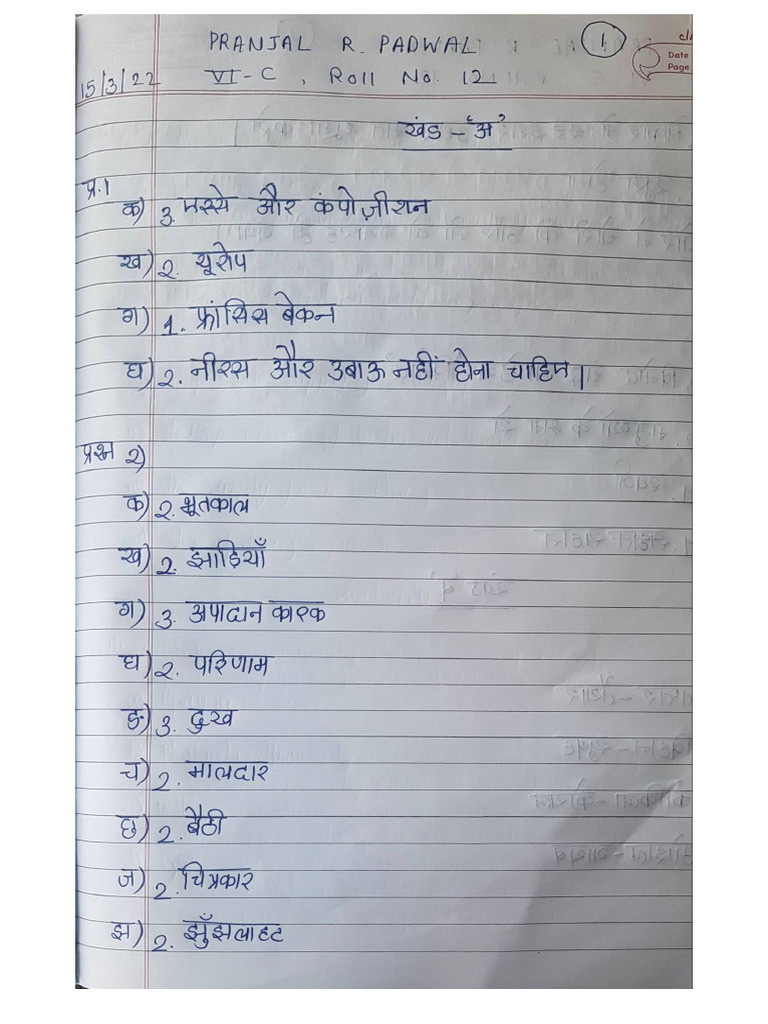 PRANJAL R. PADWAL 1
Date
15/3/22 VI-C, Roll No. 12 Page
खंड - 'अ'
प्र.1
क) 3. मस्से और कंपोज़ीशन
ख) 2. यूरोप
ग) 1. फ्रांसिस बेकन
घ) 2. नीरस और उबाऊ नहीं होना चाहिए।
प्रश्न 2)
क) 2. भूतकाल
ख) 2. झाड़ियाँ
ग) 3. अपादान कारक
घ) 2. परिणाम
ङ) 3. दुःख
च) 2. मालदार
छ) 2. बैठी
ज) 2. चित्रकार
झ) 2. झुँझलाहट